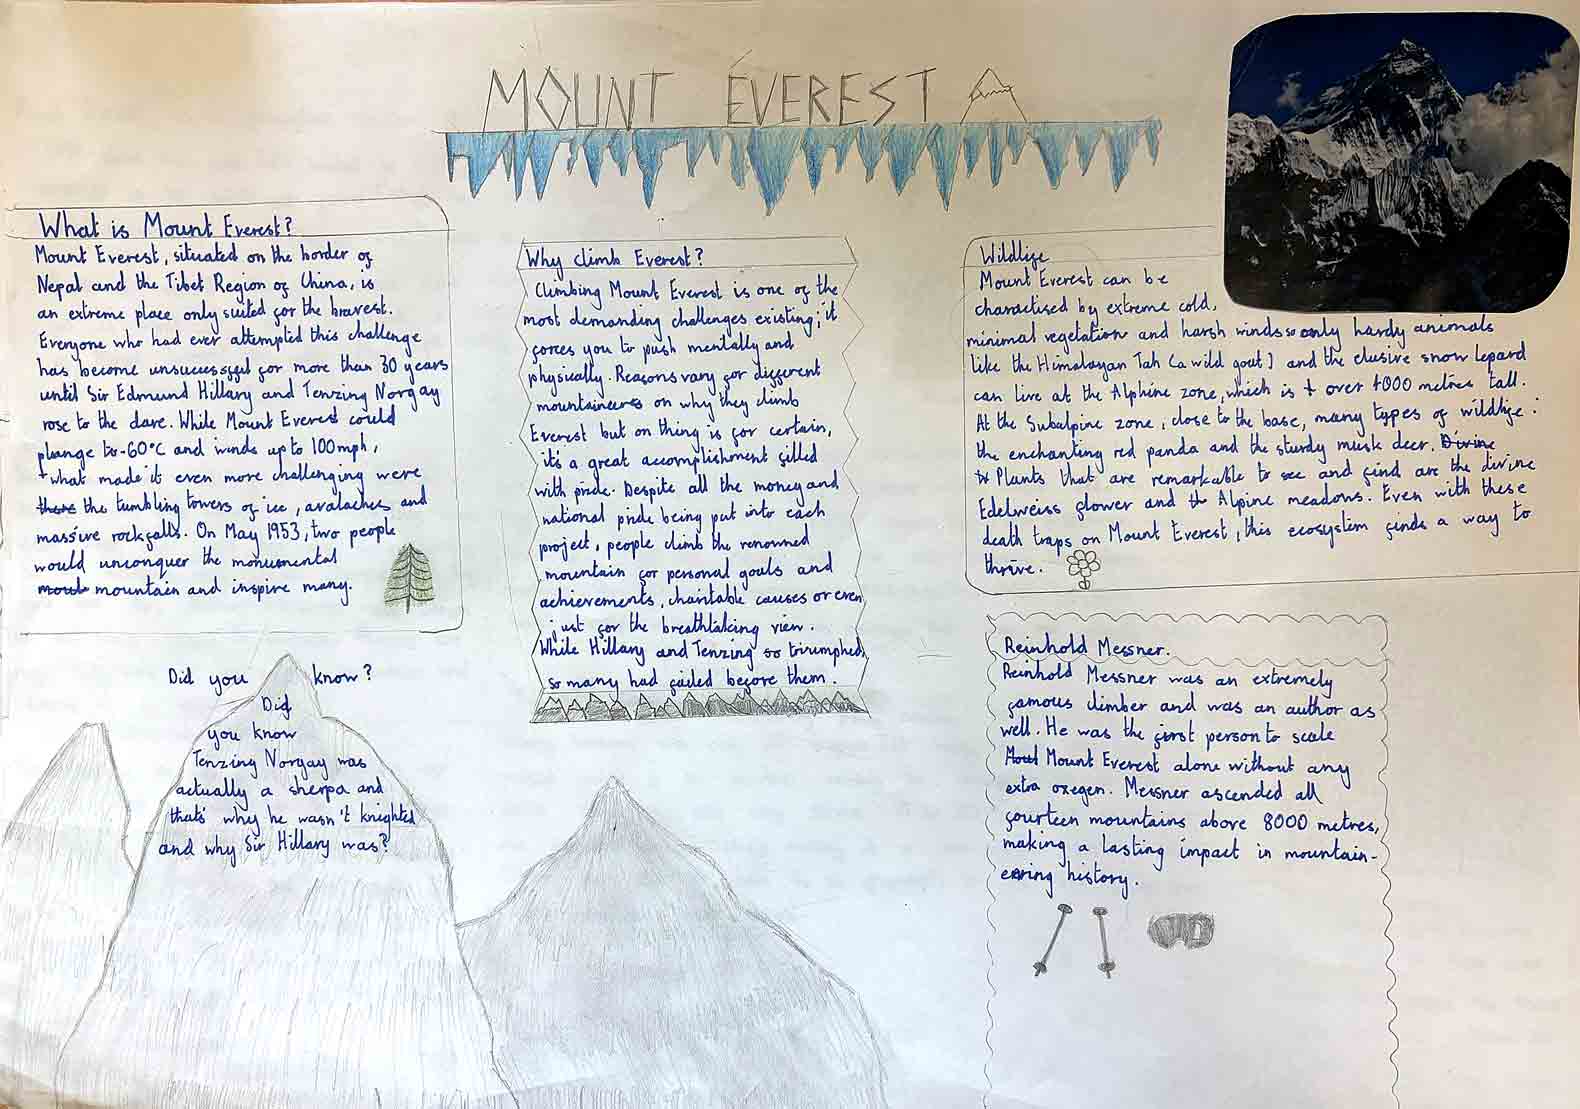 MOUNT ÉVEREST
What is Mount Everest?
Mount Everest, situated on the border of
Nepal and the Tibet Region of China, is
an extreme place only suited for the bravest.
Everyone who had ever attempted this challenge
has become unsuccessful for more than 30 years
until Sir Edmund Hillary and Tenzing Norgay
rose to the dare. While Mount Everest could
plunge to -60°C and winds up to 100mph,
what made it even more challenging were
there the tumbling towers of ice, avalaches and
massive rockfalls. On May 1953, two people
would unconquer the monumental
mount mountain and inspire many.
Did you know?
Did
you know
Tenzing Norgay was
actually a sherpa and
that's why he wasn't knighted
and why Sir Hillary was?
Why climb Everest?
Climbing Mount Everest is one of the
most demanding challenges existing; it
forces you to push mentally and
physically. Reasons vary for different
mountaineers on why they climb
Everest but on thing is for certain,
it's a great accomplishment filled
with pride. Despite all the money and
national pride being put into each
project, people climb the renowned
mountain for personal goals and
achievements, charitable causes or even
just for the breathtaking view.
While Hillary and Tenzing so triumphed,
so many had failed before them.
Wildlife
Mount Everest can be
charactised by extreme cold,
minimal vegetation and harsh winds so only hardy animals
like the Himalayan Tah (a wild gout) and the elusive snow lepard
can live at the Alphine zone, which is over 4000 metres tall.
At the Subalpine zone, close to the base, many types of wildlife:
the enchanting red panda and the sturdy musk deer. Divine
Plants that are remarkable to see and find are the divine
Edelweiss flower and th Alpine meadows. Even with these
death traps on Mount Everest, this ecosystem finds a way to
thrive.
Reinhold Messner.
Reinhold Messner was an extremely
famous climber and was an author as
well. He was the first person to scale
Mout Mount Everest alone without any
extra oxegen. Messner ascended all
fourteen mountains above 8000 metres,
making a lasting impact in mountain-
eering history.